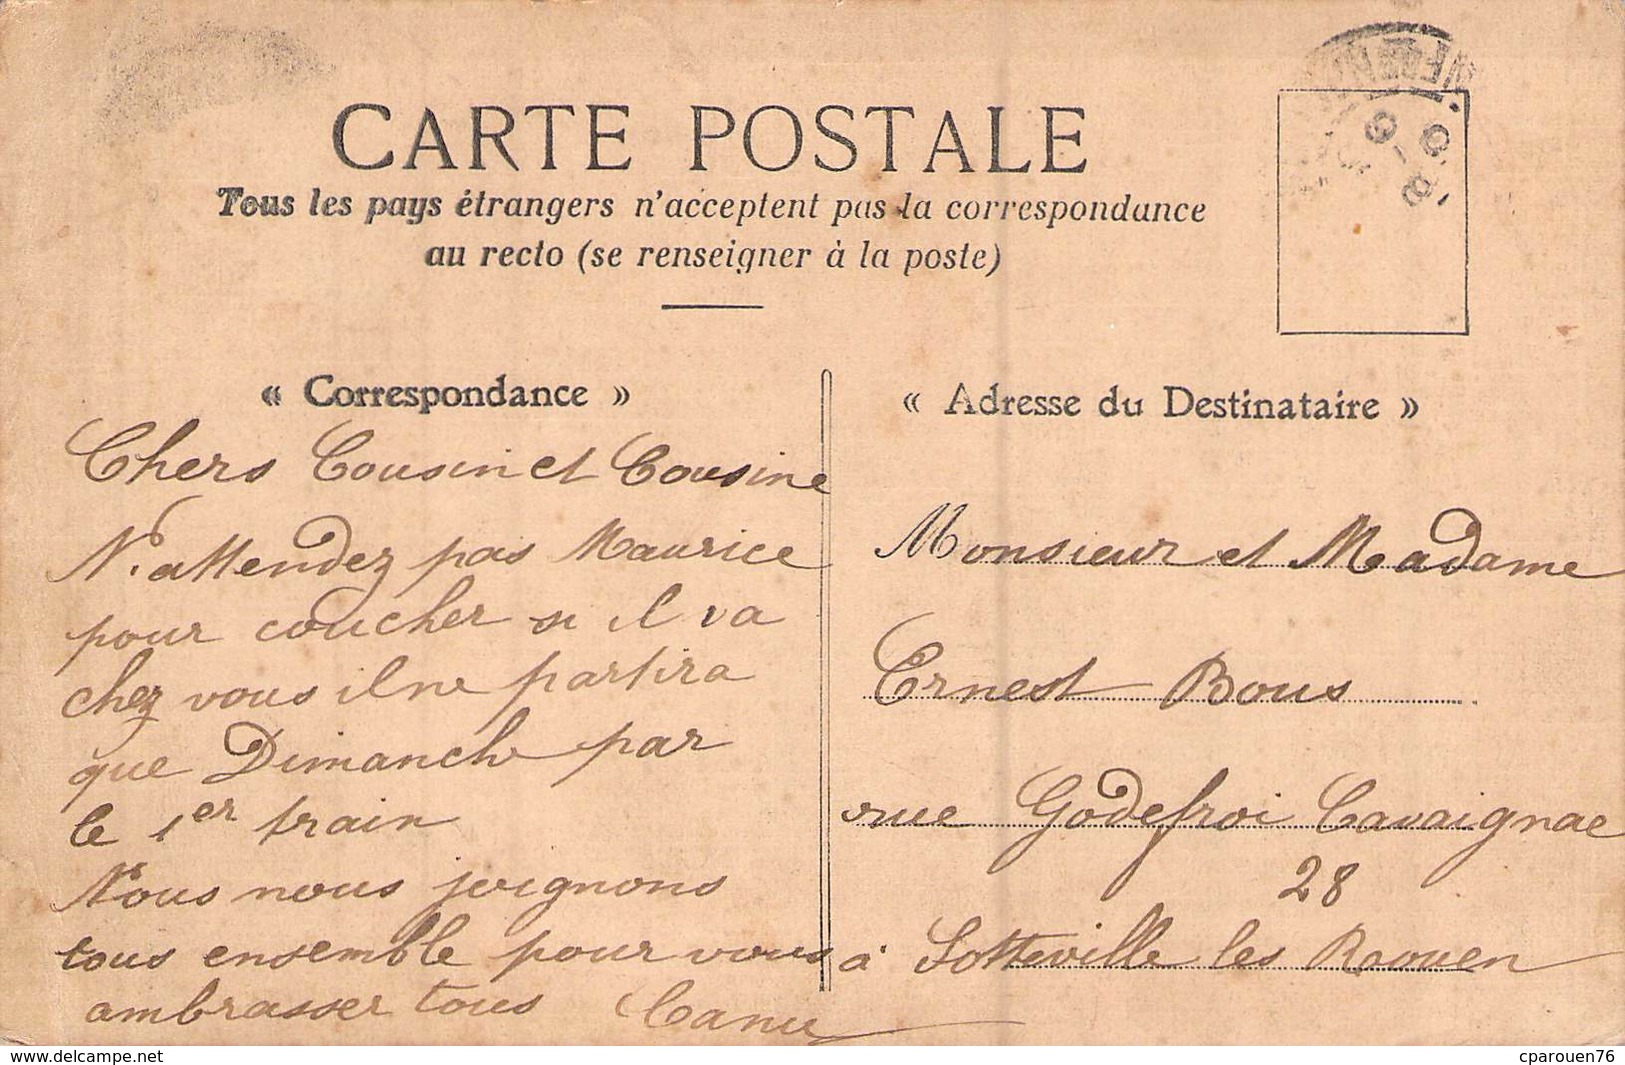 CARTE POSTALE
Tous les pays étrangers n'acceptent pas la correspondance
au recto (se renseigner à la poste)
« Correspondance »
Chers Cousin et Cousine
N'attendez pas Maurice
pour coucher si il va
chez vous il ne partira
que Dimanche par
le 1er train
Nous nous joignons
tous ensemble pour vous
ambrasser tous Canu
« Adresse du Destinataire »
Monsieur et Madame
Ernest Bous
rue Godefroi Cavaignac
28
à Sotteville les Rouen
www.delcampe.net
cparouen76